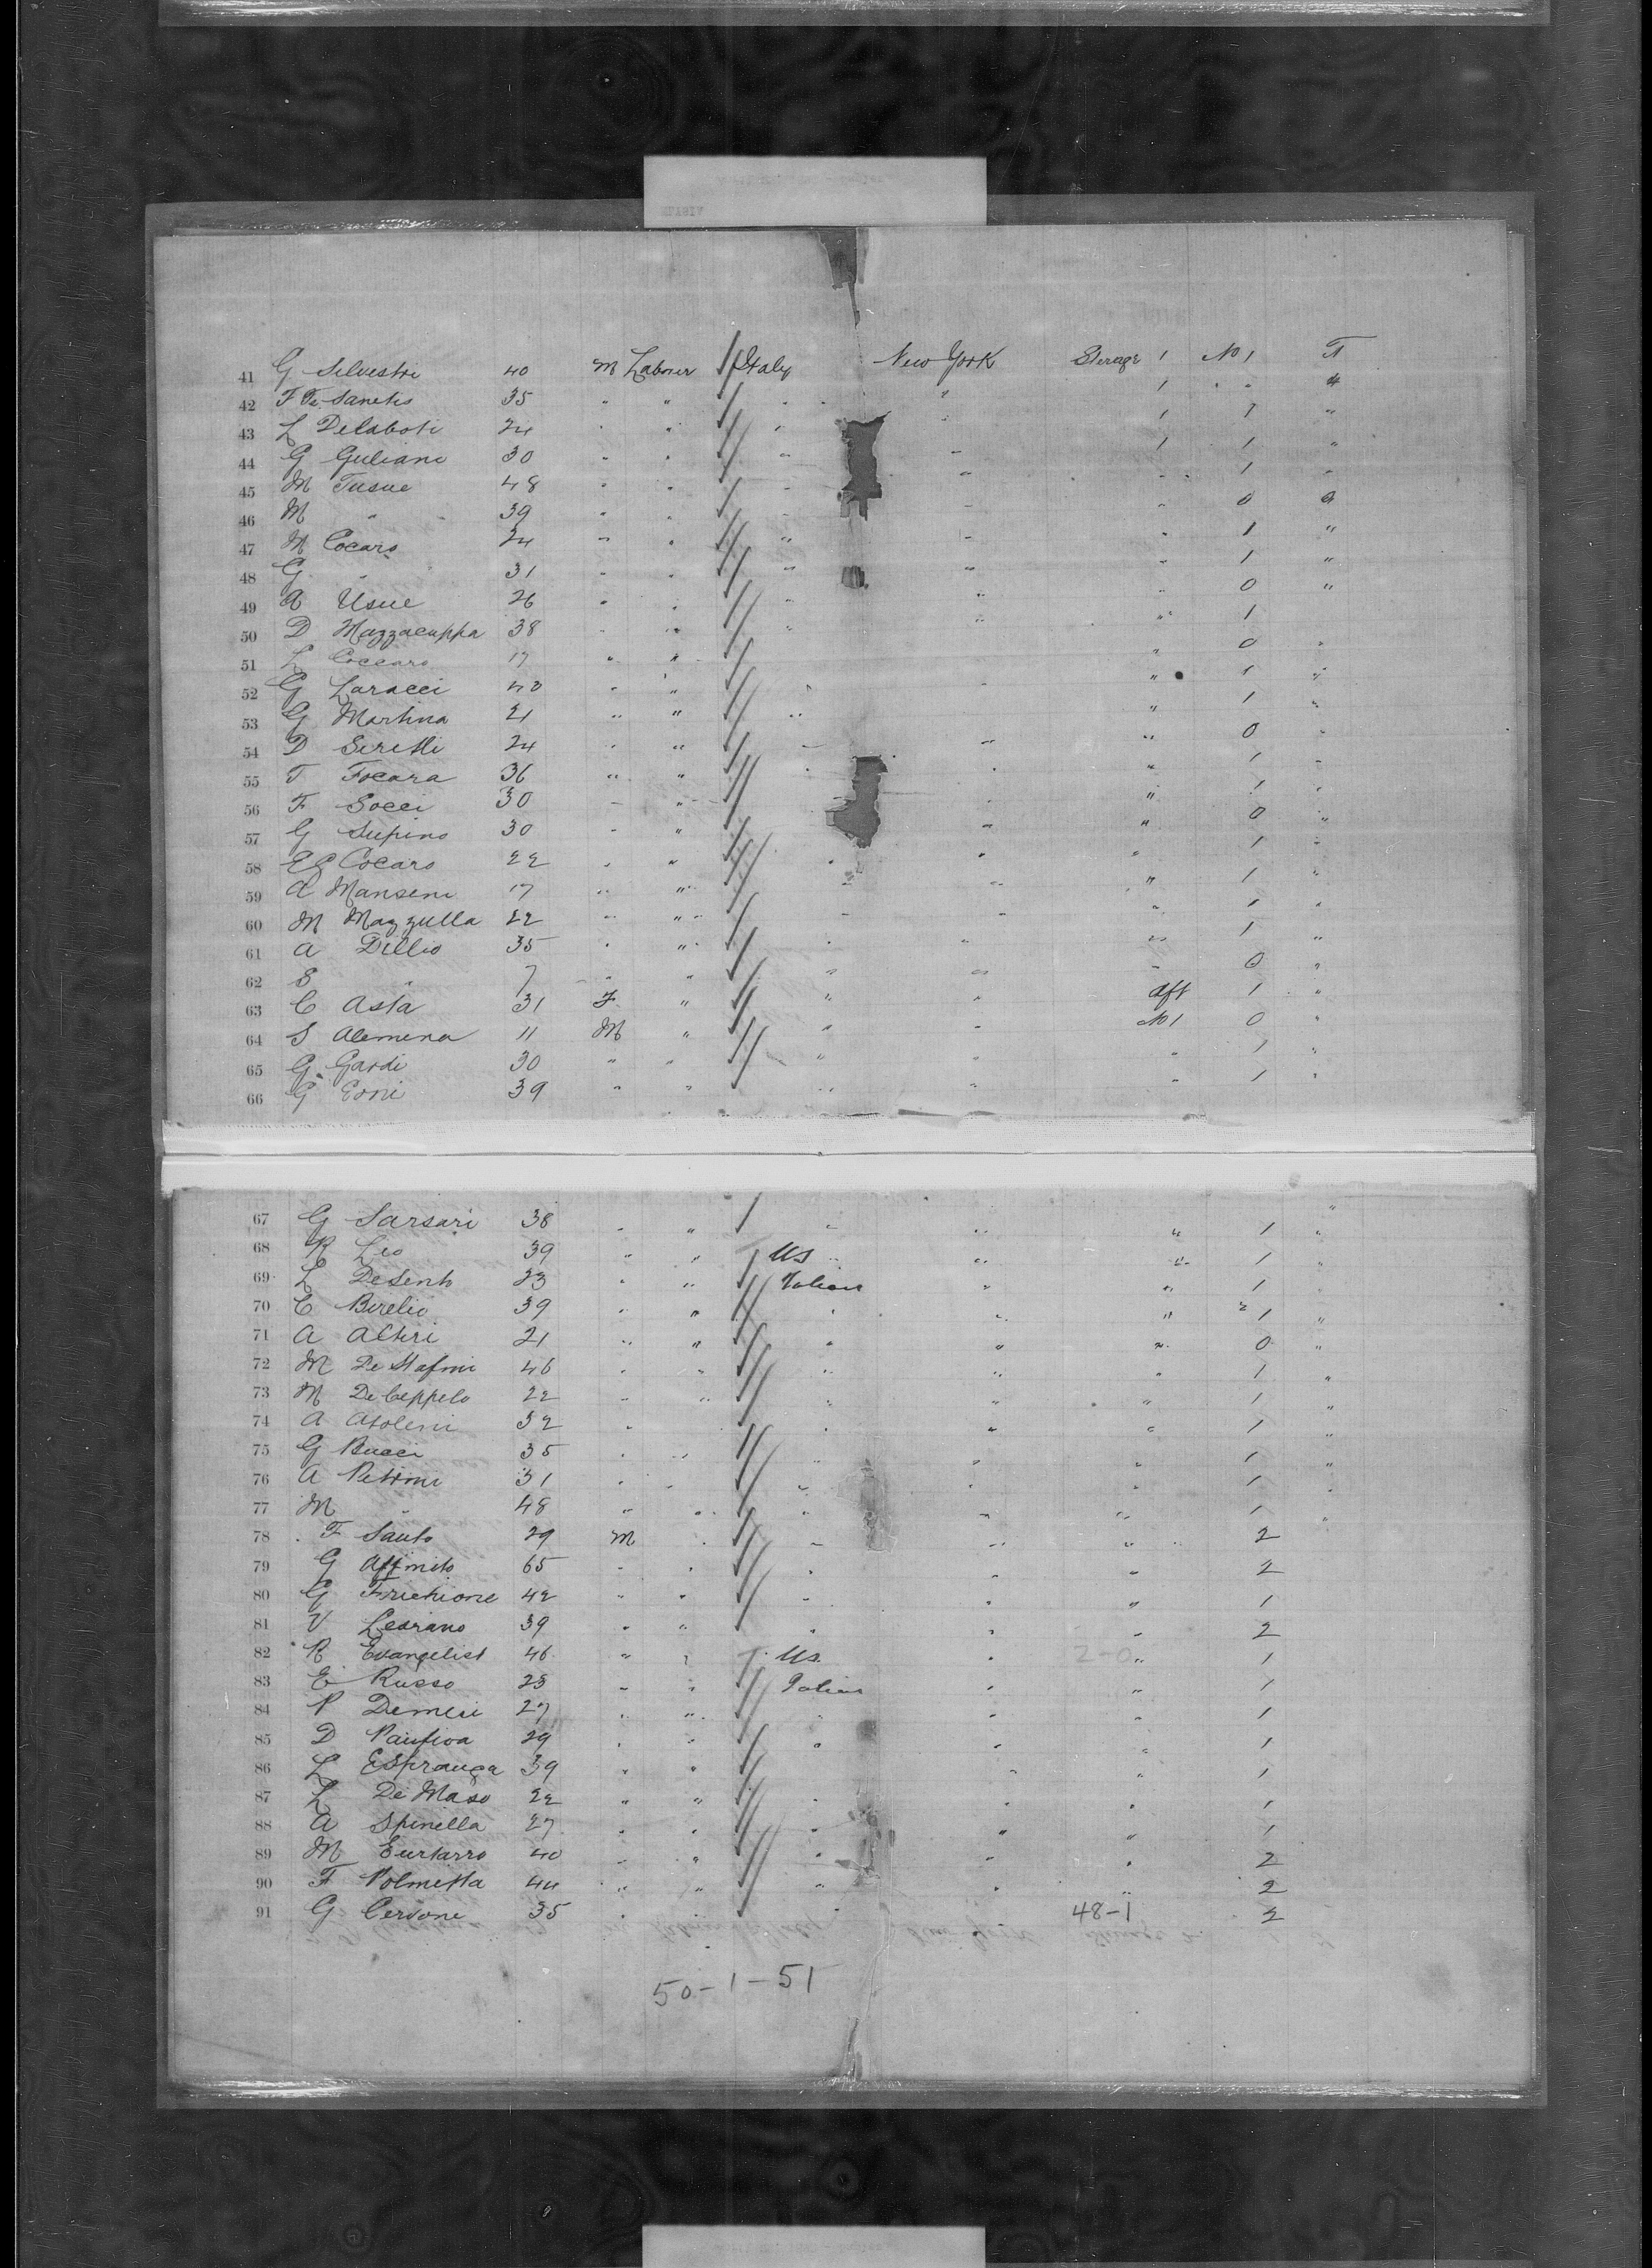 41 G Silvestri 40 M Laborer Italy New York Sterage 1 No 1 T
42 F De Sanctis 35 " " " " 1 " "
43 L Delaboti 24 " " " " 1 1 "
44 G Guliani 30 " " " " 1 1 "
45 M Tusue 48 " " " " " 1 "
46 M " 39 " " " " " 0
47 M Cocaro 24 " " " " " 1 "
48 G " 31 " " " " " 1 "
49 A Usue 26 " " " " " 0 "
50 D Mazzacuppa 38 " " " " " 1
51 L Coccaro 17 " " " 0 "
52 G Laracci 40 " " " " " 1 "
53 G Martina 21 " " " " 1 "
54 D Seretti 24 " " " " " 0 "
55 T Focara 36 " " " " " 1 "
56 F Socci 30 " " " " 1 "
57 G Supino 30 " " " " 0 "
58 Cocaro 22 " " " " " 1 "
59 A Manseni 17 " " " " " 1 "
60 M Mazzulla 22 " " " " " 1 "
61 A Dillio 35 " " " " " 1 "
62 S " 7 " " " " " 0 "
63 C Asta 31 F " " " Aft 1 "
64 S Alemena 11 M " " " No 1 0 "
65 G Gardi 30 " " " " " 1 "
66 G Erni 39 " " " " " 1 "
67 G Sarsari 38 " " " " " 1 "
68 R Leo 39 " " US " " 1 "
69 L Desento 23 " " Italian " " 1 "
70 C Birelio 39 " " " " " 1 "
71 A Altiri 21 " " " " " 0 "
72 M De Stafini 46 " " " " " 1 "
73 M De Ceppelo 22 " " " " " 1 "
74 A Asoleni 32 " " " " 1 "
75 G Bucci 35 " " " " " 1 "
76 A Petrini 31 " " " " " 1 "
77 M " 48 " " " " " 1 "
78 F Santo 29 M " " " " 2
79 G Affinito 65 " " " " " 2
80 G Frichione 42 " " " " " 1
81 V Lesrano 39 " " " " " 2
82 R Evangelist 46 " " US " 2-0 " 1
83 E Russo 23 " " Italian " " 1
84 P Demesi 27 " " " " " 1
85 D 29 " " " " " 1
86 L Espranga 39 " " " " 1
87 L De Maso 22 " " " " " 1
88 A Spinella 27 " " " " " 1
89 M Eurtarro 40 " " " " " 2
90 F Volmetta 44 " " " " " 2
91 G Cervone 35 " " 48-1 2
50-1-51